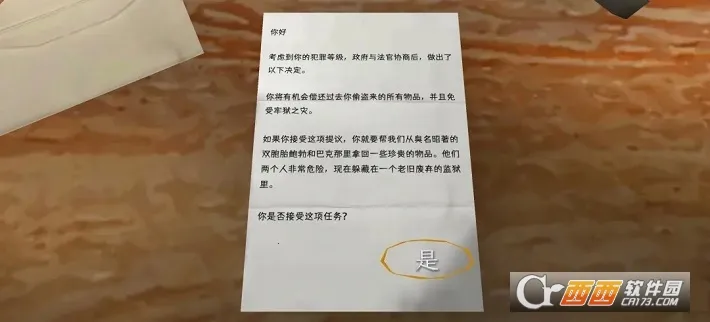 你好
考虑到你的犯罪等级，政府与法官协商后，做出了
以下决定。
你将有机会偿还过去你偷盗来的所有物品，并且免
受牢狱之灾。
如果你接受这项提议，你就要帮我们从臭名昭著的
双胞胎鲍勃和巴克那里拿回一些珍贵的物品。他们
两个人非常危险，现在躲藏在一个老旧废弃的监狱
里。
你是否接受这项任务？
是
Cr 西西软件园
CR173.COM